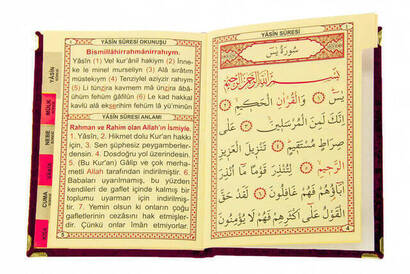 YÂSÎN SÛRESİ OKUNUŞU
Bismillâhirrahmânirrahıym.
Yâsîn (1) Vel kur'ânil hakiym (2) İnne-
ke le minel murseliyn (3) Alâ sırâtım
müstekıym (4) Tenziylel aziyzir rahıym
(5) Li tünzira kavmem mâ ünzira âbâ-
ühüm fehüm ğâfilûn (6) Le kad hakkal
kavlü alâ ekserihim fehüm lâ yü'minûn
YÂSÎN SÛRESİ ANLAMI
Rahman ve Rahim olan Allah'ın İsmiyle.
1. Yâsîn, 2. Hikmet dolu Kur'an hakkı
için, 3. Sen şüphesiz peygamberler-
densin. 4. Dosdoğru yol üzerindesin.
5. (Bu Kur'an) Gâlip ve çok merha-
metli Allah tarafından indirilmiştir. 6.
Babaları uyarılmamış, bu yüzden
kendileri de gaflet içinde kalmış bir
toplumu uyarman için indirilmiş-
tir. 7. Yemin olsun ki onların çoğu
gafletlerinin cezâsını hak etmişler-
dir. Çünkü onlar îman etmiyorlar.
YÂSÎN
MÜLK
NEBE
CUMA
YÂSÎN SÛRESİ
سُورَةُ يٰسٓ
بِسْمِ اللّٰهِ الرَّحْمٰنِ الرَّحِيمِ
يٰسٓ ﴿١﴾ وَالْقُرْاٰنِ الْحَكِيمِ ﴿٢﴾
اِنَّكَ لَمِنَ الْمُرْسَلِينَ ﴿٣﴾ عَلٰى
صِرَاطٍ مُسْتَقِيمٍ ﴿٤﴾ تَنْزِيلَ الْعَزِيزِ
الرَّحِيمِ ﴿٥﴾ لِتُنْذِرَ قَوْمًا مَٓا اُنْذِرَ
اٰبَٓاؤُ۬هُمْ فَهُمْ غَافِلُونَ ﴿٦﴾ لَقَدْ حَقَّ
الْقَوْلُ عَلٰٓى اَكْثَرِهِمْ فَهُمْ لَا يُؤْمِنُونَ